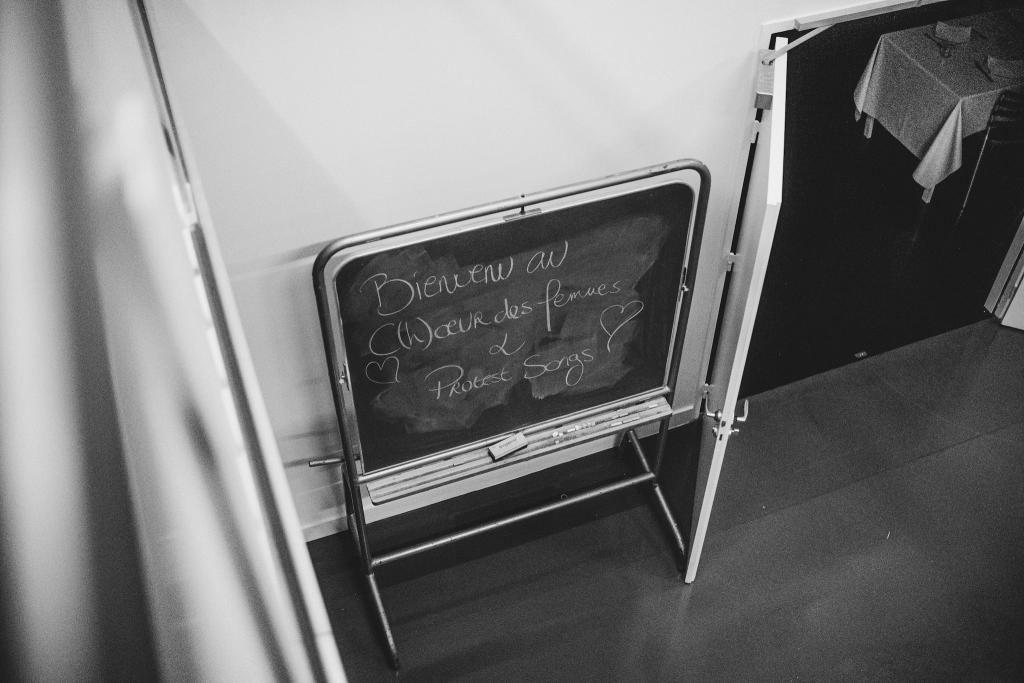 Bienvenu au
C(h)œur des femmes
&
Protest Songs